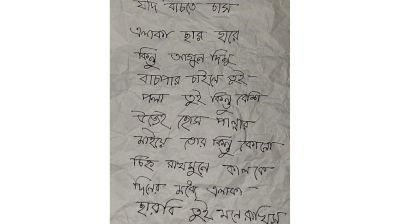 যদি বাঁচতে চাস
এলাকা ছার হারে
কিন্তু আগুন দিমু
বাচাপার চাইলে তুই
পলা তুই কিন্তু বেশি
হোস
তোর কিন্তু কোনো
চিহ্ন রাখমুনে কালকে
দিনের মধ্যে এলাকা
ছারবি তুই মনে রাখিস